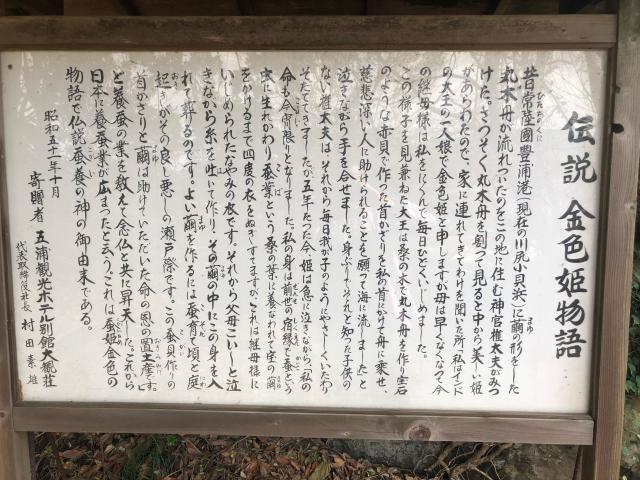 伝説 金色姫物語
昔日常陸國豊浦港(現在の川尻小貝浜)に繭の形をした
丸木舟が流れついたのをこの地に住む神宮権太夫がみつ
けた。さつそく丸木舟を割って見ると中から美しい姫
があらわれたので、家に連れてきてわけを聞いた所「私はインド
の大王の一人娘で金色姫と申しますが母は早くなくなって今
の継母様は私をにくんで毎日ひどくいじめました。
この様子を見兼ねた大王は桑の木で丸木舟を作り宝石
のような赤貝で作った首かざりを私の首にかけて舟に乗せ、
慈悲深い人に助けられることを願って海に流しました」と
泣きながら手を合せました。身ぶりでそれと知った子供の
ない権太夫は、それから毎日我が子のようにやさしくいたわり
そだててきましたが五年たった今姫は急に泣きながら、「私の
命も今宵限りとなりました。私の身は前世の宿縁で蚕という
虫に生れかわり蚕業という桑の葉に養なわれて宝の繭
をかけるまで四度の衣をぬぎすてますが、これは継母様に
いじめられたなやみの衣です。それから父母こいしと泣
きながら糸を吐いて作り、その繭の中にこの身を入
れて葬るのです。よい繭を作るには蚕育て頃と庭
起きがその良し悪しの瀬戸際です。この蚕貝作りの
首かざりと繭は助けていただいた命の恩の置土産です」
と養蚕の業を教えて念仏と共に昇天した。これから
日本に養蚕業が広まったと云う。これは蚕姫金色の
物語で仏説蚕養の神の御由来である。
昭和五十一年十月
寄贈者 五浦観光ホテル別館大観荘
代表取締役社長 村田素雄